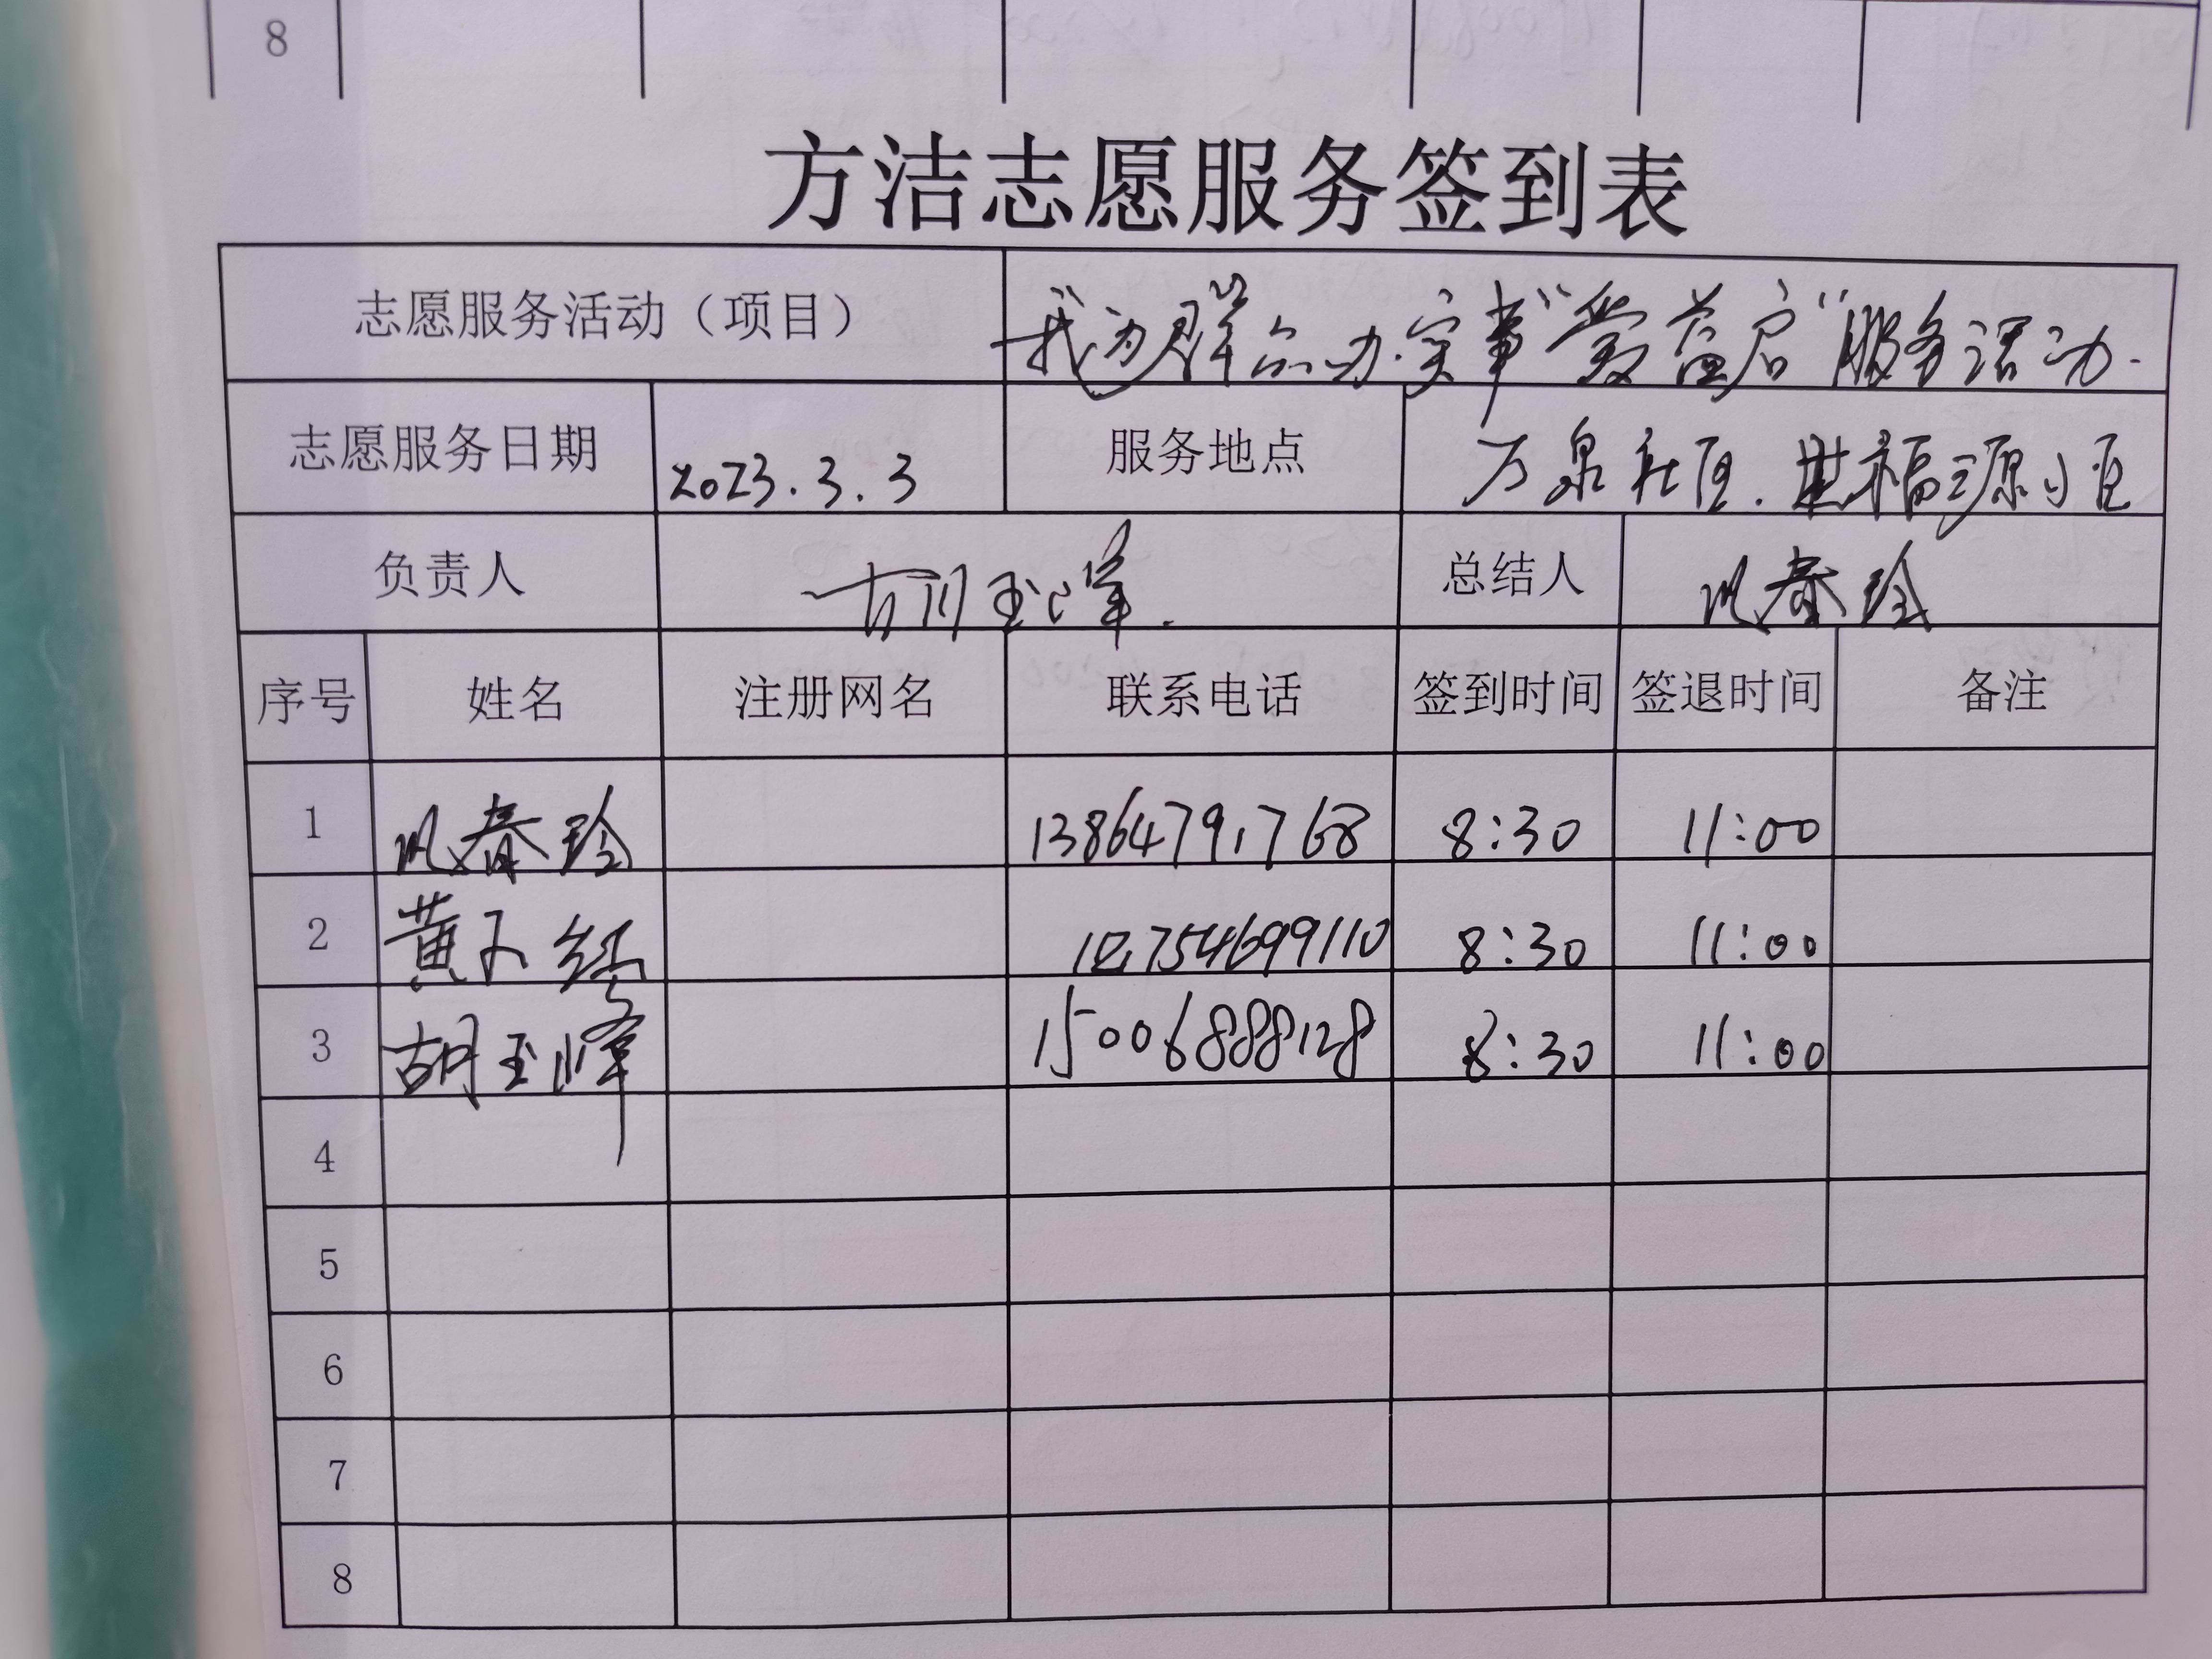 8
方洁志愿服务签到表
志愿服务活动（项目） 我为群众办实事"爱益启"服务活动.
志愿服务日期 2023.3.3 服务地点 万泉社区.世福源小区
负责人 胡玉峰. 总结人 春玲
序号 姓名 注册网名 联系电话 签到时间 签退时间 备注
1 春玲 13864791768 8:30 11:00
2 黄 红 754699110 8:30 11:00
3 胡玉峰 15006888128 8:30 11:00
4
5
6
7
8